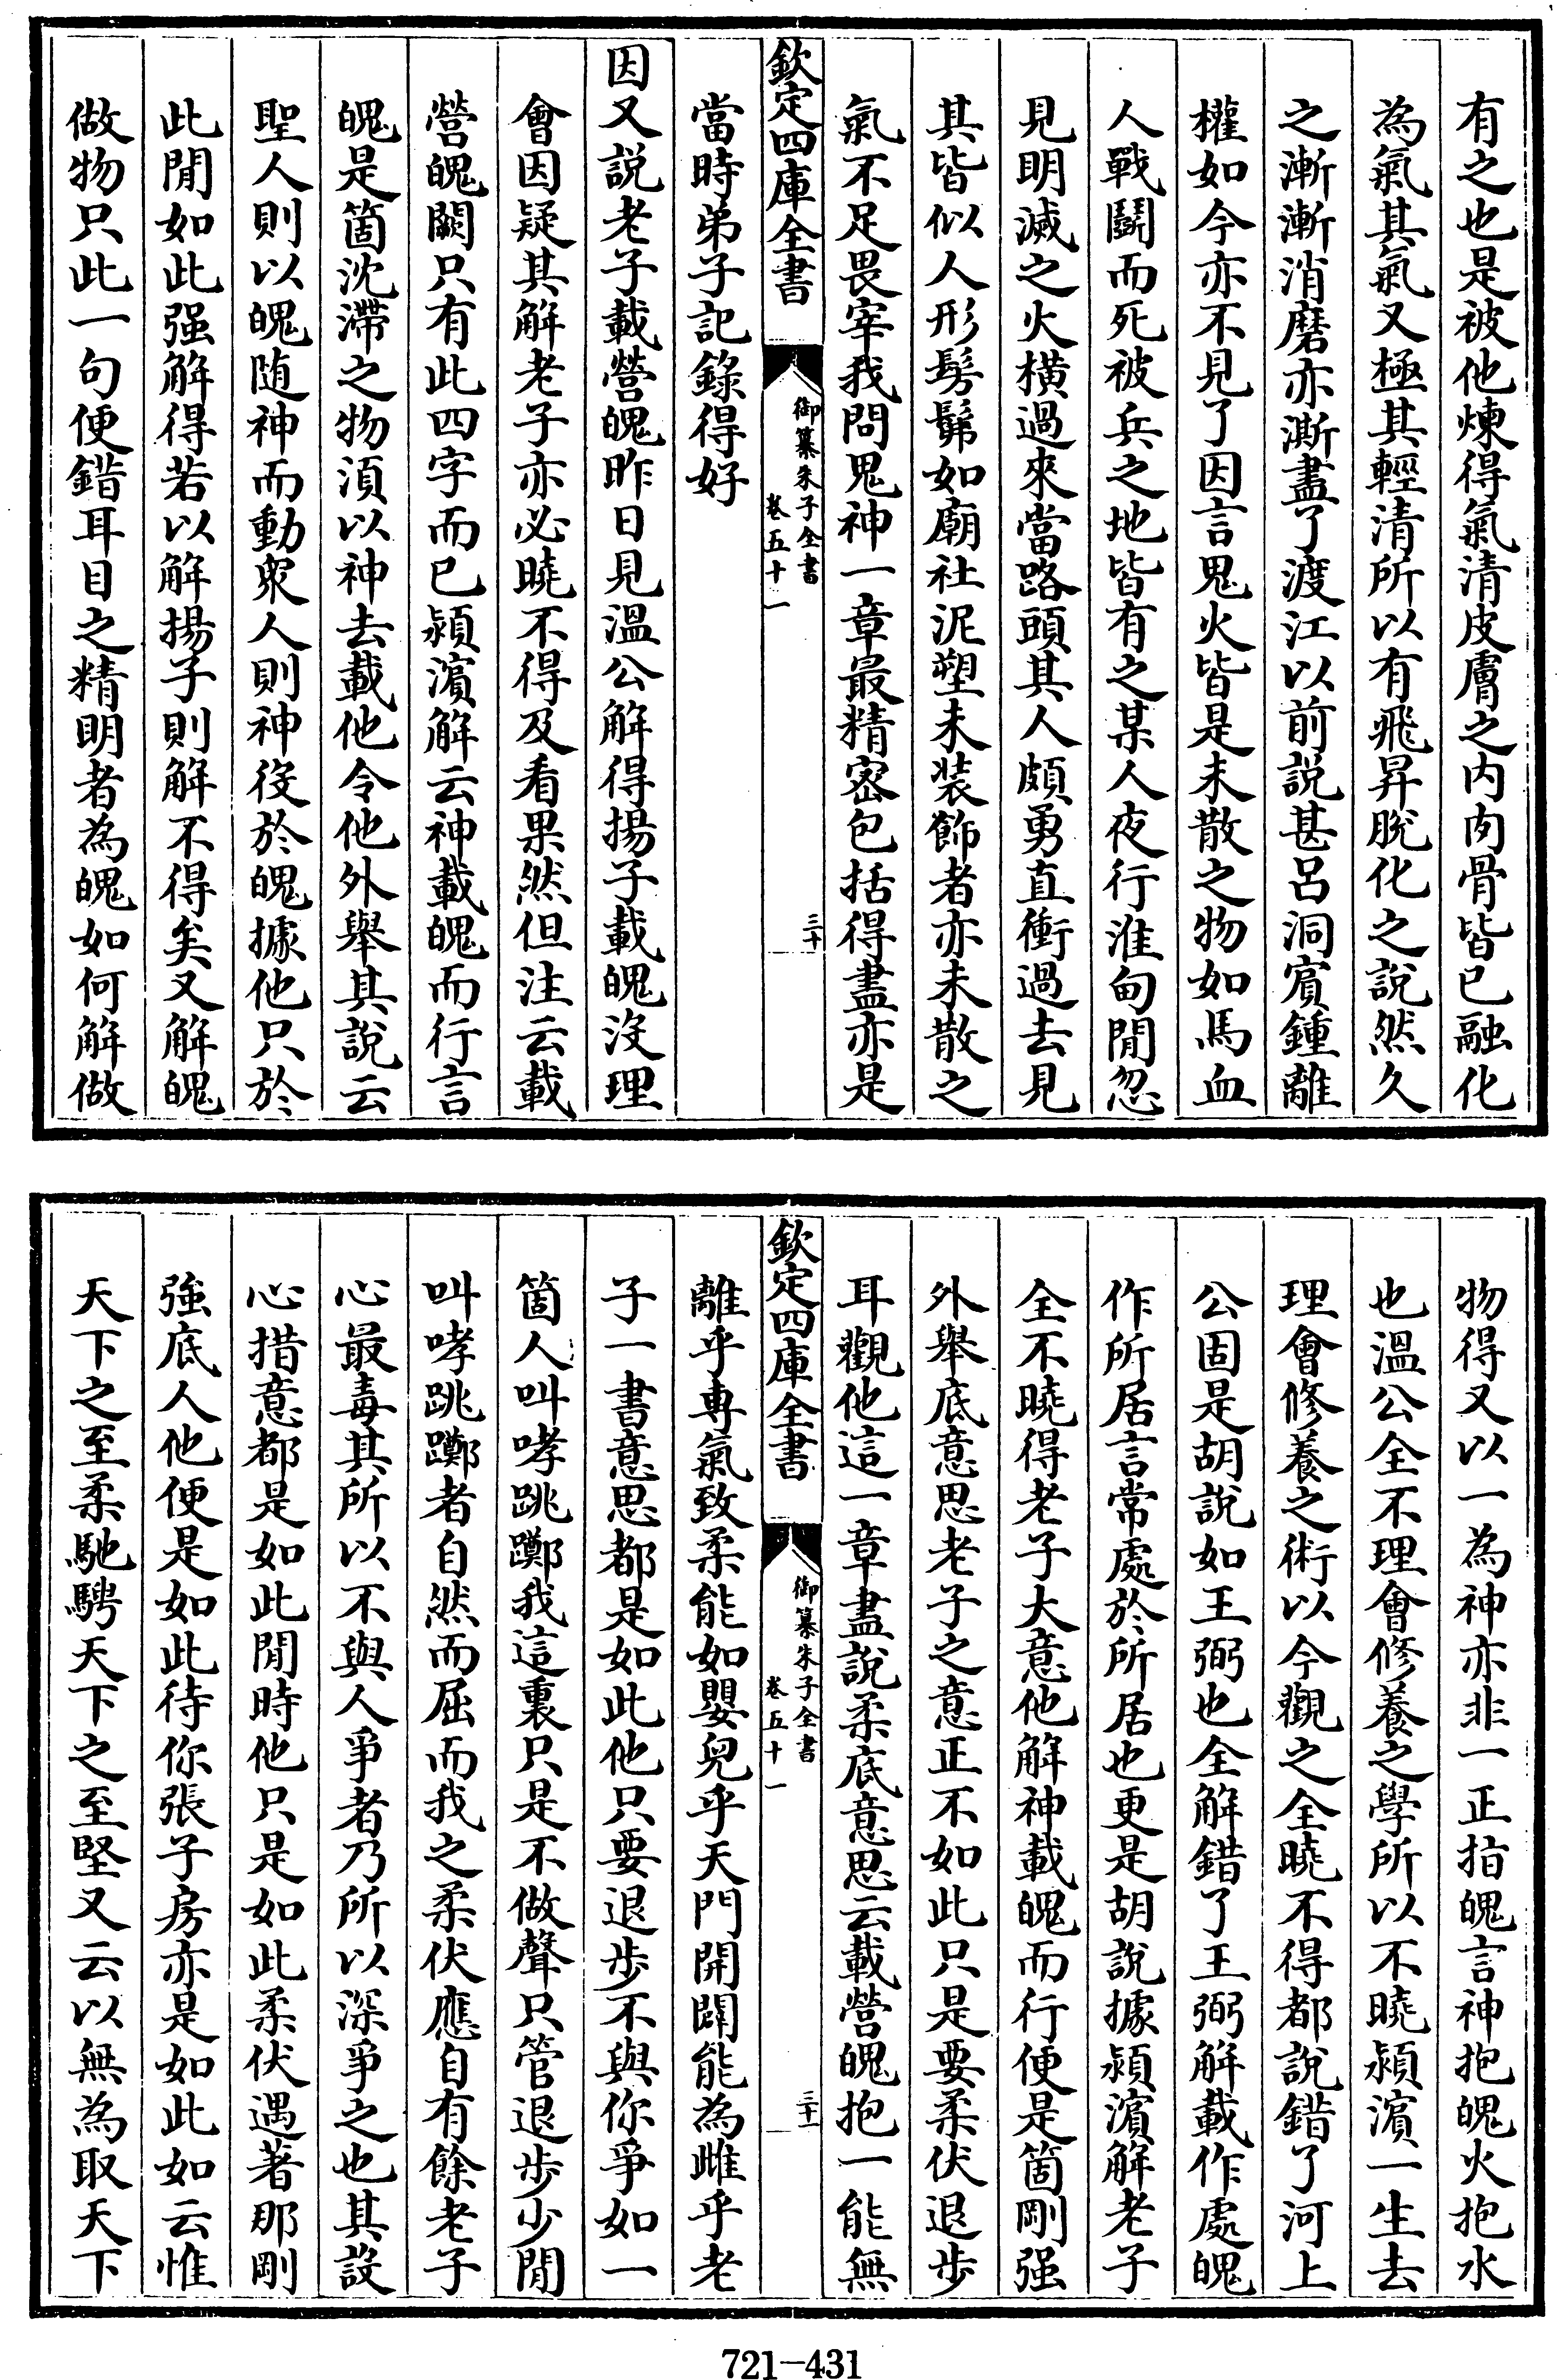 有之也是被他煉得氣清皮膚之内肉骨皆已融化
為氣其氣又極其輕清所以有飛昇脱化之説然久
之漸漸消磨亦澌盡了渡江以前説甚吕洞賓鍾離
權如今亦不見了因言鬼火皆是未散之物如馬血
人戰鬭而死被兵之地皆有之某人夜行淮甸閒忽
見明滅之火横過來當路頭其人頗勇直衝過去見
其皆似人形髣髴如廟社泥塑未装飾者亦未散之
氣不足畏宰我問鬼神一章最精密包括得盡亦是
欽定四庫全書
御纂朱子全書
卷五十一
三十
當時弟子記錄得好
因又説老子載營魄昨日見溫公解得揚子載魄沒理
會因疑其解老子亦必曉不得及看果然但注云載
營魄闕只有此四字而已潁濵解云神載魄而行言
魄是箇沈滯之物須以神去載他令他外舉其説云
聖人則以魄随神而動衆人則神役於魄據他只於
此閒如此强解得若以解揚子則解不得矣又解魄
做物只此一句便錯耳目之精明者為魄如何解做
物得又以一為神亦非一正指魄言神抱魄火抱水
也溫公全不理會修養之學所以不曉潁濵一生去
理會修養之術以今觀之全曉不得都說錯了河上
公固是胡說如王弼也全解錯了王弼解載作處魄
作所居言常處於所居也更是胡說據潁濵解老子
全不曉得老子大意他解神載魄而行便是箇剛强
外舉底意思老子之意正不如此只是要柔伏退步
耳觀他這一章盡説柔底意思云載營魄抱一能無
欽定四庫全書
御纂朱子全書
卷五十一
三十一
離乎專氣致柔能如嬰兒乎天門開闔能為雌乎老
子一書意思都是如此他只要退步不與你爭如一
箇人叫哮跳躑我這裏只是不做聲只管退步少閒
叫哮跳躑者自然而屈而我之柔伏應自有餘老子
心最毒其所以不與人爭者乃所以深爭之也其設
心措意都是如此閒時他只是如此柔伏遇著那剛
強底人他便是如此待你張子房亦是如此如云惟
天下之至柔馳騁天下之至堅又云以無為取天下
721-431